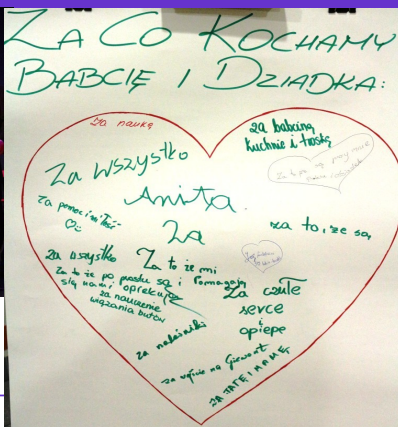 ZA CO KOCHAMY
BABCIĘ I DZIADKA:
Za naukę
za babciną
kuchnię i troskę
Za wszystko
Anita
za pomoc i miłość
Za
za to, że są
za wszystko
Za to że mi
pomagają
Za to że po prostu są i
się nami opiekują
za nauczenie
wiązania butów
Za czułe
serce
i
opiepe
za naleśniki
za wejście na Giewont
ZA TATĘ I MAMĘ